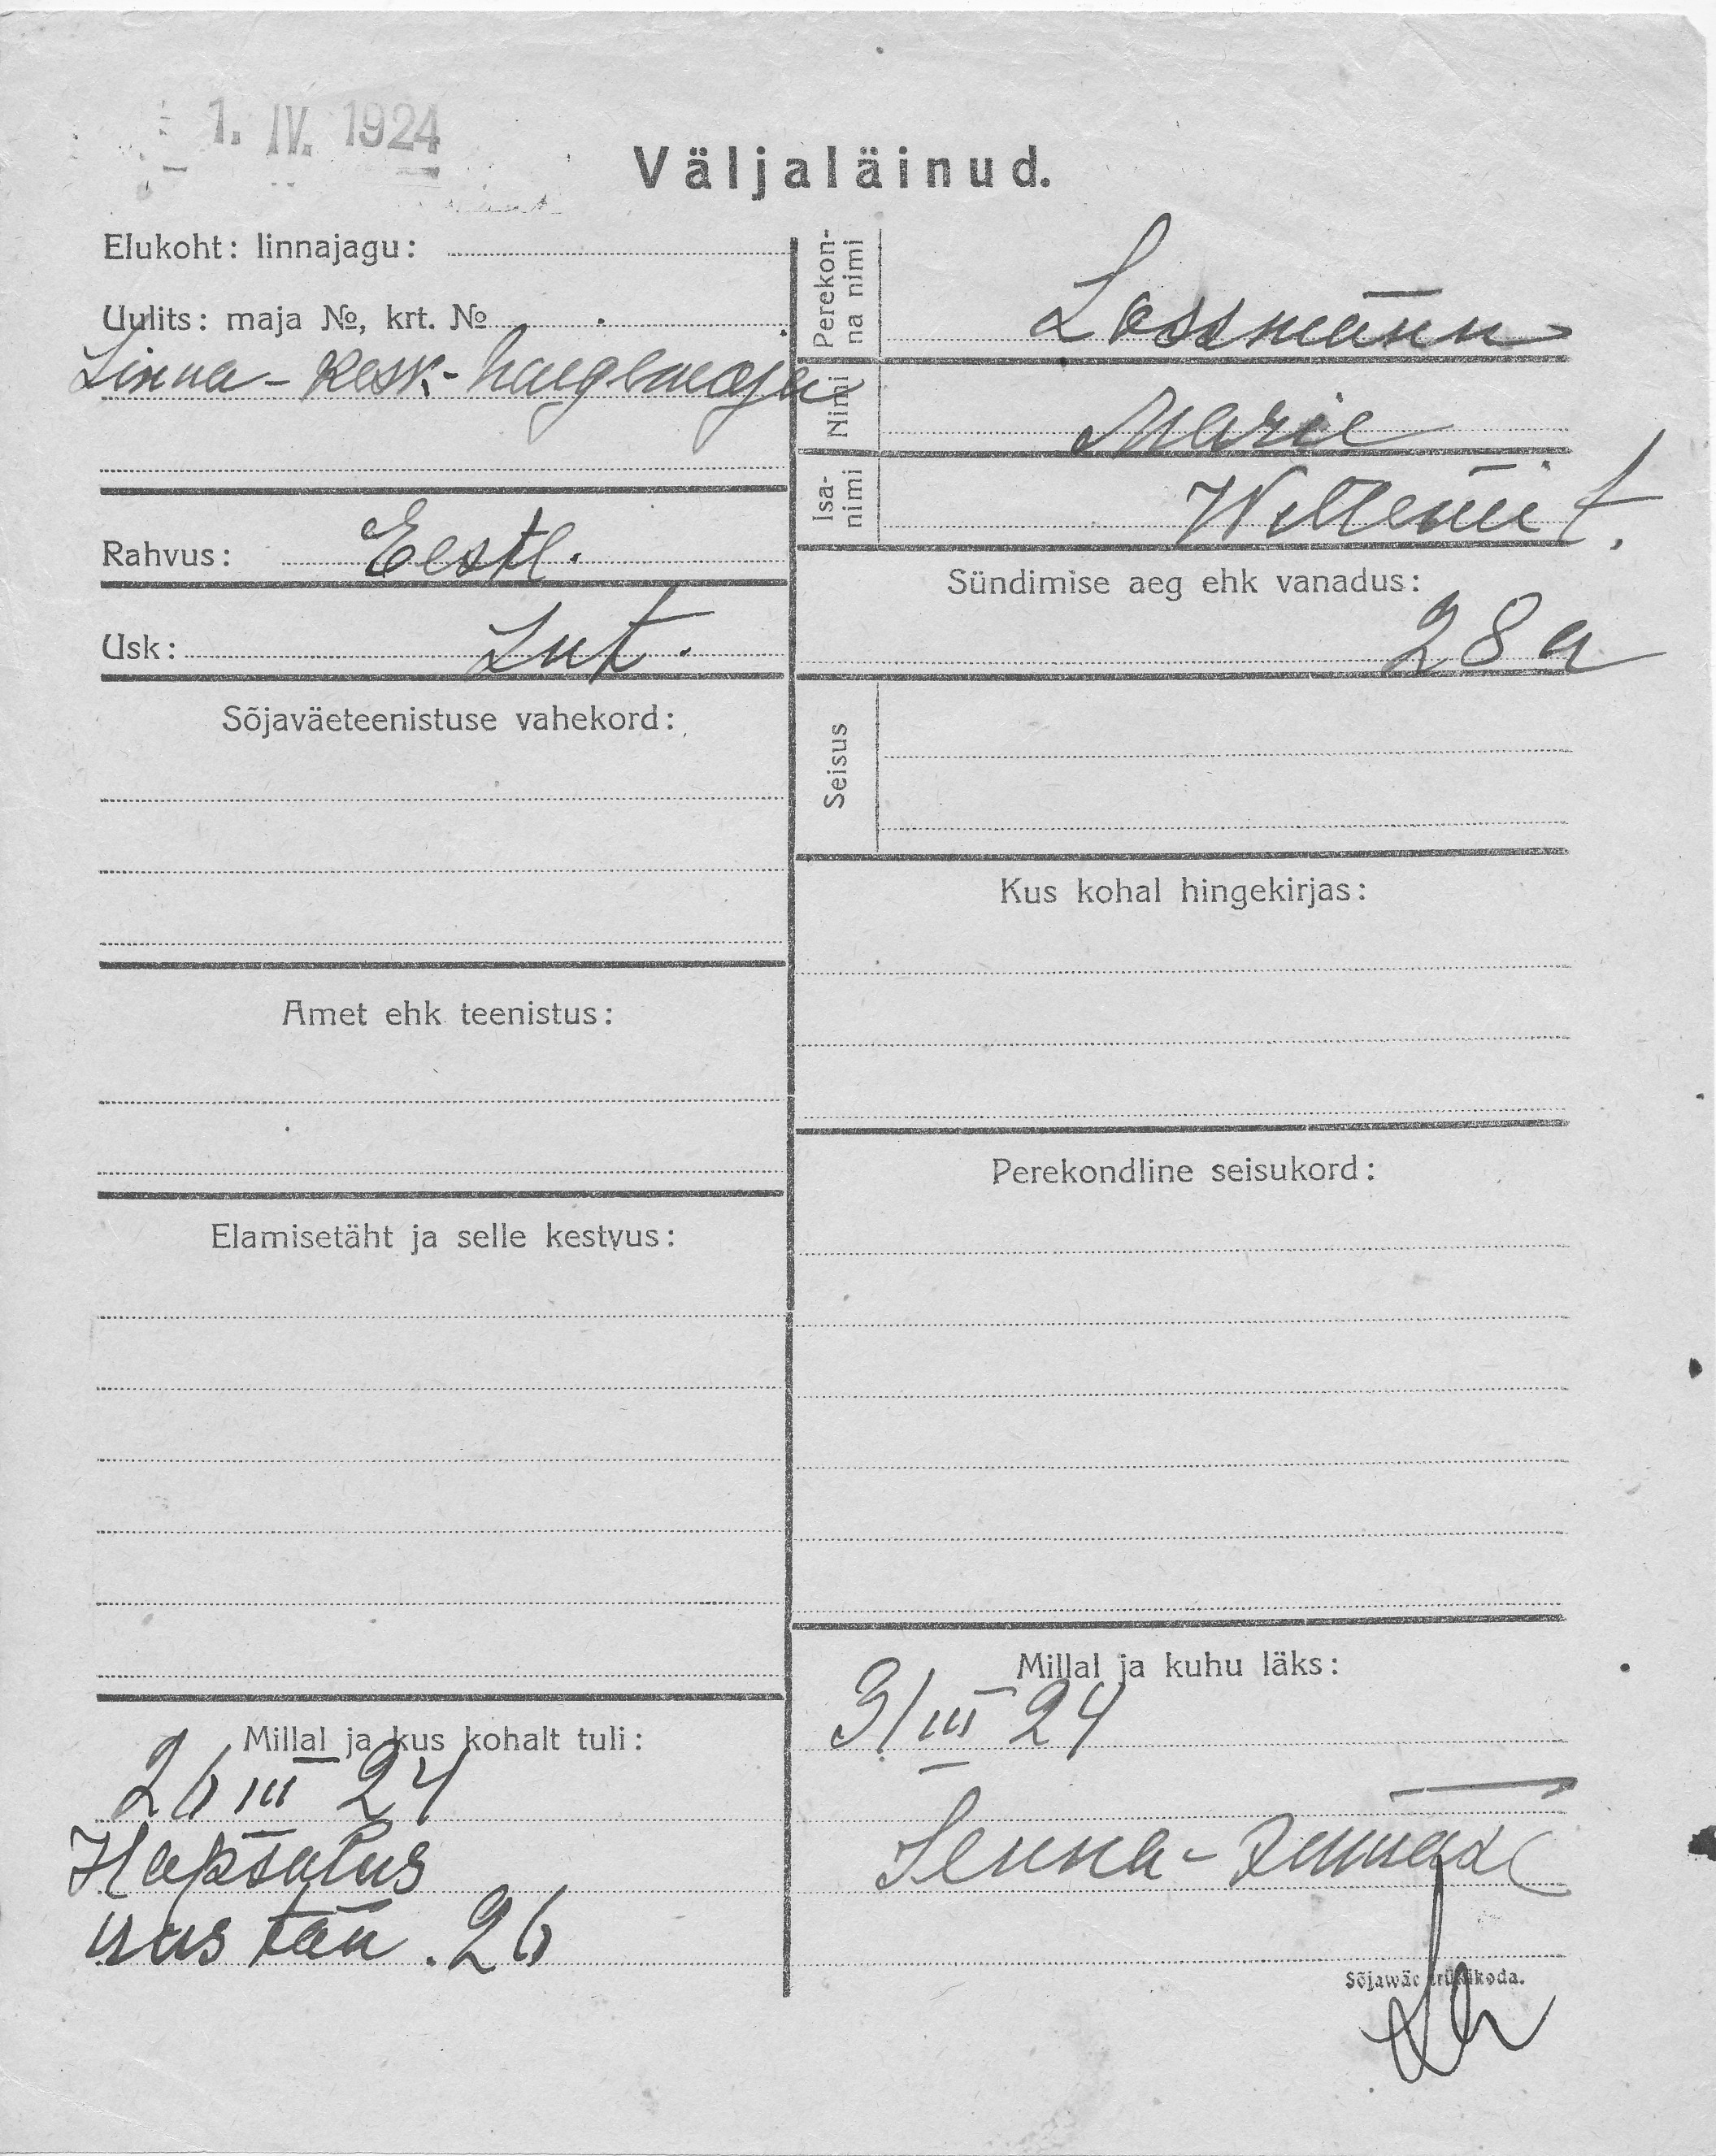 1. IV. 1924
Väljaläinud.
Elukoht: linnajagu:
Uulits: maja №, krt. №
Linna-Kesk-haigemaja
Rahvus: Eestl.
Usk: Lut.
Sõjaväeteenistuse vahekord:
Amet ehk teenistus:
Elamisetäht ja selle kestvus:
Millal ja kus kohalt tuli:
26 III 24
Hapsalus
uus tän. 26
Perekon-
na nimi
Lossmann
Nimi
Marie
Isa-
nimi
Willemi t.
Sündimise aeg ehk vanadus:
28 a
Seisus
Kus kohal hingekirjas:
Perekondline seisukord:
Millal ja kuhu läks:
31 III 24
Sõjawäe trükikoda.